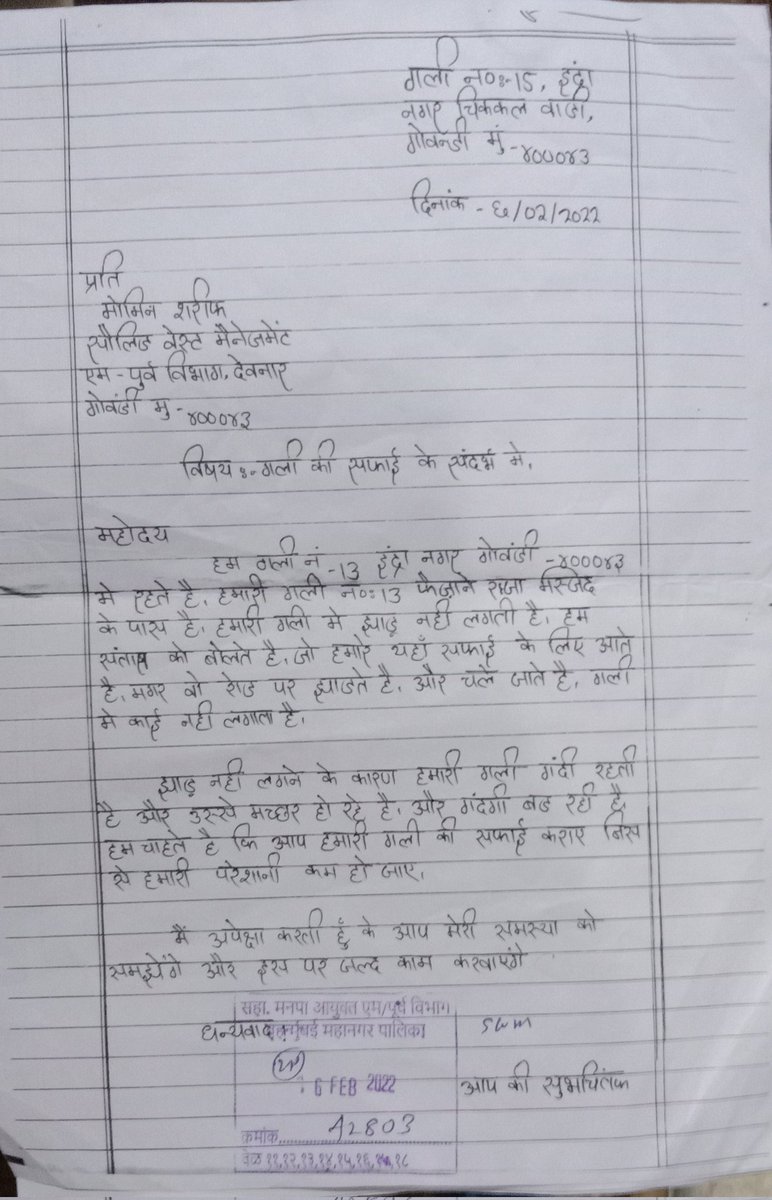 गली न०:-15, इंद्रा
नगर चिककल वाडी,
गोवन्डी मुं -४०००४३
दिनांक - ६/02/2022
प्रति
मोमिन शरीफ
सौलिड वेस्ट मैनेजमेंट
एम - पुर्व विभाग, देवनार
गोवंडी मु -४०००४३
विषय :- गली की सफाई के संदर्भ मे.
महोदय
हम गली नं -13 इंद्रा नगर गोवंडी -४०००४३
मे रहते है. हमारी गली न०:13 फैजाने राजा मस्जिद
के पास है. हमारी गली मे झाडू नही लगती है. हम
को बोलते है. जो हमारे यहाँ सफाई के लिए आते
है. मगर वो रोड पर झाडते है. और चले जाते है. गली
मे काई नही लगाता है.
झाडू नही लगने के कारण हमारी गली गंदी रहती
है और उससे मच्छर हो रहे है. और गंदगी बड रही है.
हम चाहते है कि आप हमारी गली की सफाई कराए जिस
से हमारी परेशानी कम हो जाए.
मैं अपेक्षा करती हुँ के आप मेरी समस्या को
समझेंगे और इस पर जल्द काम करवाएंगे
सहा. मनपा आयुक्त एम/पूर्व विभाग
धन्यवाद बृहन्मुंबई महानगर पालिका SWM
6 FEB 2022 आप की सुभचिंतक
क्रमांक 42803
वेळ ११,१२,१३,१४,१५,१६,१७,१८